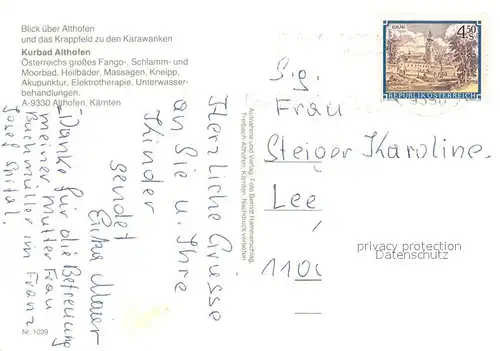 Blick über Althofen
und das Krappfeld zu den Karawanken
Kurbad Althofen
Österreichs großes Fango-, Schlamm- und
Moorbad, Heilbäder, Massagen, Kneipp,
Akupunktur, Elektrotherapie, Unterwasser-
behandlungen.
A-9330 Althofen, Kärnten
Herzliche Grüsse
an Sie u. Ihre
Kinder
sendet
Erika Maier
Danke für die Betreuung
meiner Mutter Frau
Buchmüller im Franz
Josef Spital.
Nr. 1039
Aufnahme und Verlag: Foto Bernd Hammerschlag,
Treibach-Althofen, Kärnten. Nachdruck verboten
4.50
S
REPUBLIK ÖSTERREICH
9330
S.g.
Frau
Steiger Karoline
Lee
110
privacy protection
Datenschutz